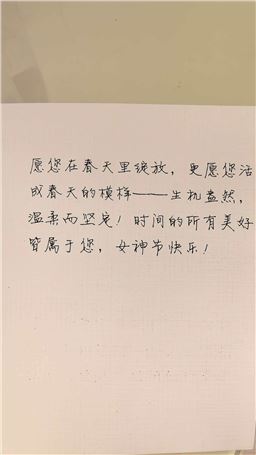 愿您在春天里绽放，更愿您活
成春天的模样——生机盎然，
温柔而坚定！时间的所有美好
皆属于您，女神节快乐！